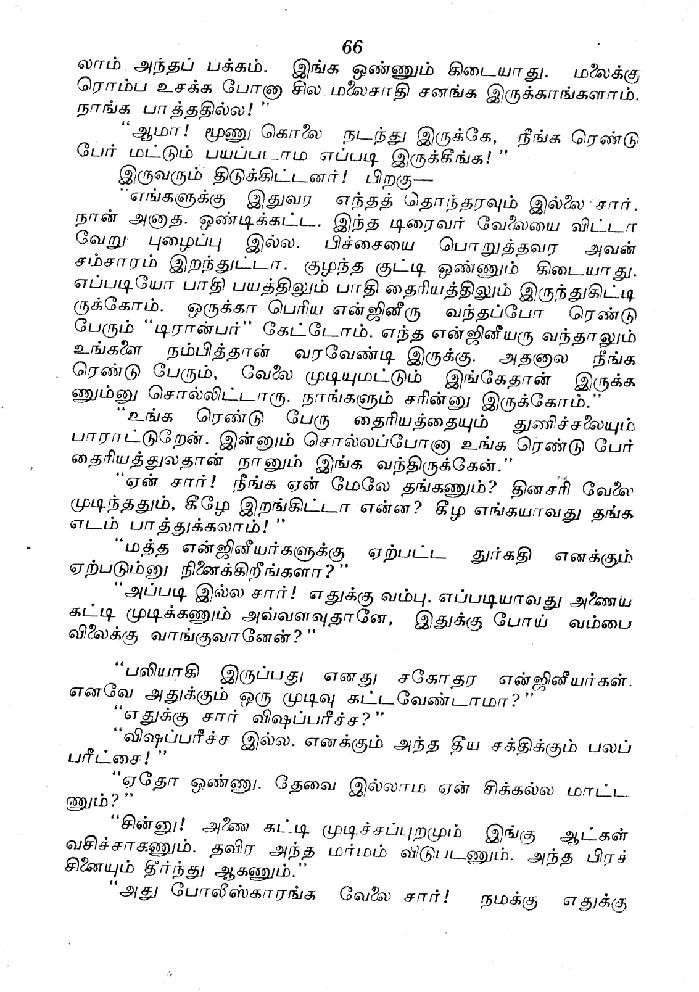 66
லாம் அந்தப் பக்கம். இங்க ஒண்ணும் கிடையாது. மலைக்கு
ரொம்ப உசக்க போனா சில மலைசாதி சனங்க இருக்காங்களாம்.
நாங்க பாத்ததில்ல!"
"ஆமா! மூணு கொலை நடந்து இருக்கே, நீங்க ரெண்டு
பேர் மட்டும் பயப்படாம எப்படி இருக்கீங்க!"
இருவரும் திடுக்கிட்டனர்! பிறகு—
"எங்களுக்கு இதுவர எந்தத் தொந்தரவும் இல்லை சார்.
நான் அனாத. ஒண்டிக்கட்ட. இந்த டிரைவர் வேலையை விட்டா
வேறு புழைப்பு இல்ல. பிச்சையை பொறுத்தவர அவன்
சம்சாரம் இறந்துட்டா. குழந்த குட்டி ஒண்ணும் கிடையாது.
எப்படியோ பாதி பயத்திலும் பாதி தைரியத்திலும் இருந்துகிட்டி
ருக்கோம். ஒருக்கா பெரிய என்ஜினீரு வந்தப்போ ரெண்டு
பேரும் "டிரான்பர்" கேட்டோம். எந்த என்ஜினீயரு வந்தாலும்
உங்களை நம்பித்தான் வரவேண்டி இருக்கு. அதனால நீங்க
ரெண்டு பேரும், வேலை முடியுமட்டும் இங்கேதான் இருக்க
ணும்னு சொல்லிட்டாரு. நாங்களும் சரின்னு இருக்கோம்."
"உங்க ரெண்டு பேரு தைரியத்தையும் துணிச்சலையும்
பாராட்டுறேன். இன்னும் சொல்லப்போனா உங்க ரெண்டு பேர்
தைரியத்துலதான் நானும் இங்க வந்திருக்கேன்."
"ஏன் சார்! நீங்க ஏன் மேலே தங்கணும்? தினசரி வேலை
முடிந்ததும், கீழே இறங்கிட்டா என்ன? கீழ எங்கயாவது தங்க
எடம் பாத்துக்கலாம்!"
"மத்த என்ஜினீயர்களுக்கு ஏற்பட்ட துர்கதி எனக்கும்
ஏற்படும்னு நினைக்கிறீங்களா?"
"அப்படி இல்ல சார்! எதுக்கு வம்பு. எப்படியாவது அணைய
கட்டி முடிக்கணும் அவ்வளவுதானே, இதுக்கு போய் வம்பை
விலைக்கு வாங்குவானேன்?"
"பலியாகி இருப்பது எனது சகோதர என்ஜினீயர்கள்.
எனவே அதுக்கும் ஒரு முடிவு கட்டவேண்டாமா?"
"எதுக்கு சார் விஷப்பரீச்ச?"
"விஷப்பரீச்ச இல்ல. எனக்கும் அந்த தீய சக்திக்கும் பலப்
பரீட்சை!"
"ஏதோ ஒண்ணு. தேவை இல்லாம ஏன் சிக்கல்ல மாட்ட
ணும்?"
"சின்னு! அணை கட்டி முடிச்சப்புறமும் இங்கு ஆட்கள்
வசிச்சாகணும். தவிர அந்த மர்மம் விடுபடணும். அந்த பிரச்
சினையும் தீர்ந்து ஆகணும்."
"அது போலீஸ்காரங்க வேலை சார்! நமக்கு எதுக்கு